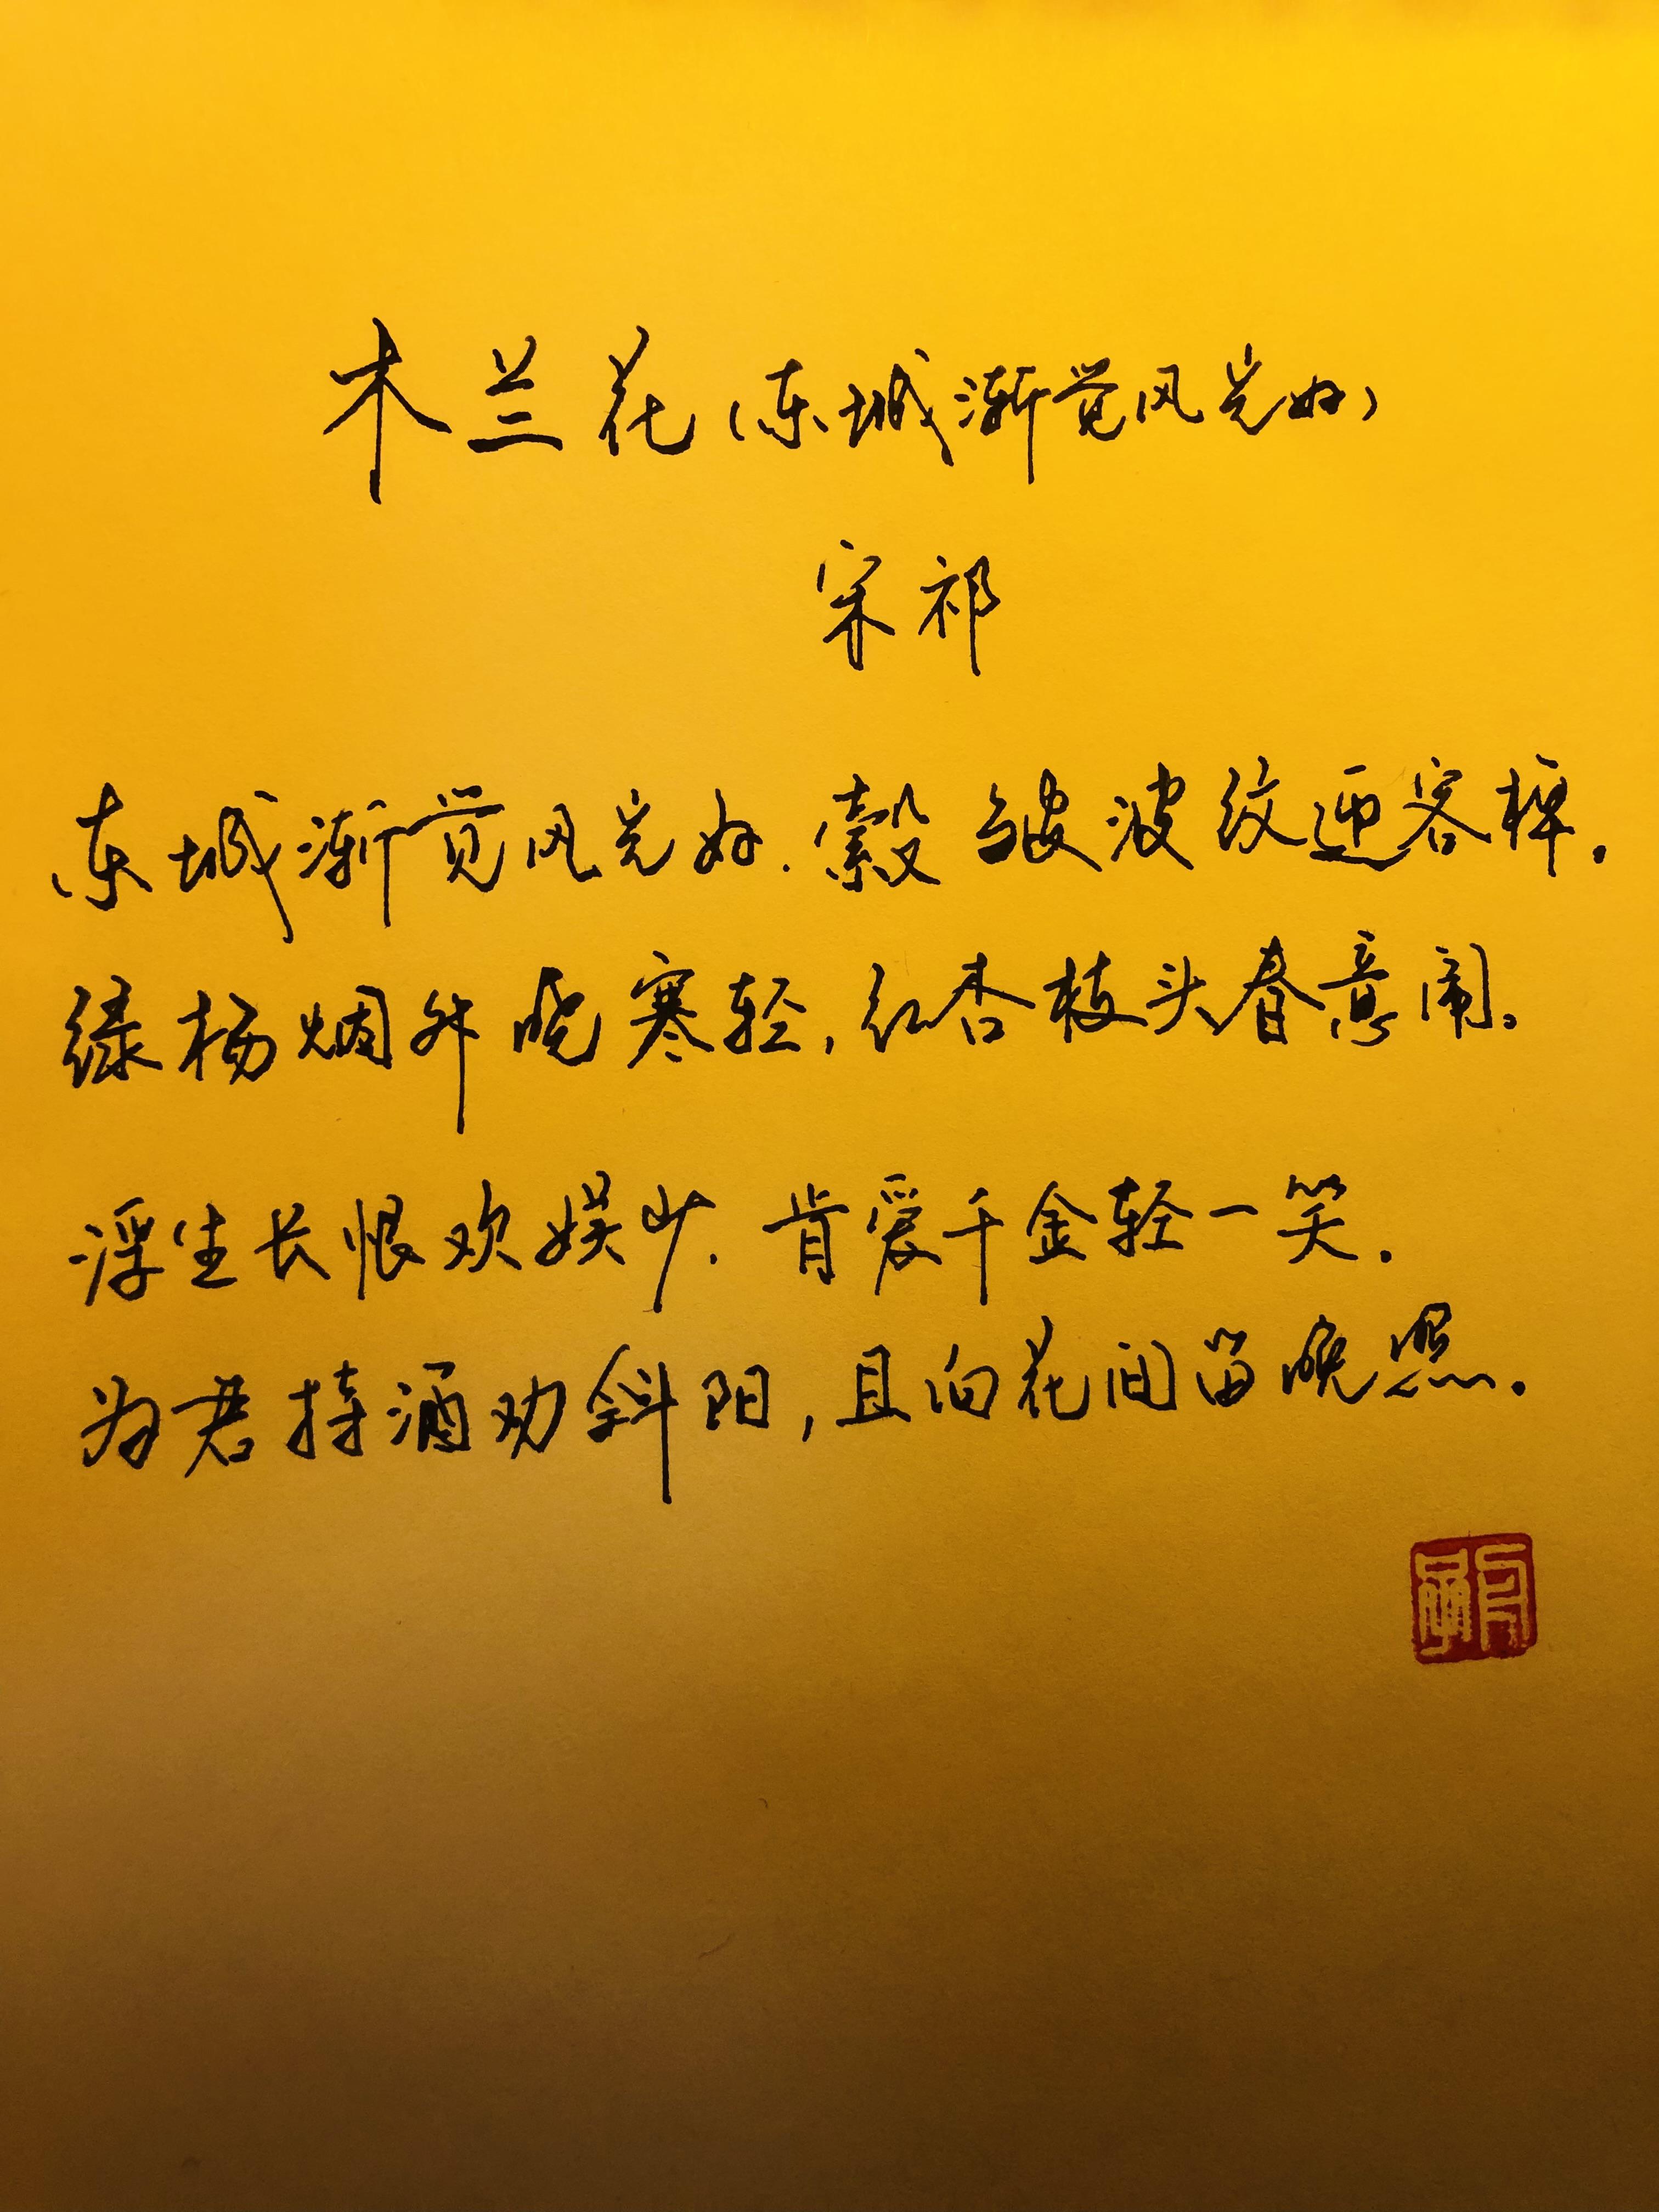 木兰花(东城渐觉风光好)
宋祁
东城渐觉风光好.縠皱波纹迎客棹.
绿杨烟外晓寒轻,红杏枝头春意闹。
浮生长恨欢娱少.肯爱千金轻一笑.
为君持酒劝斜阳,且向花间留晚照.